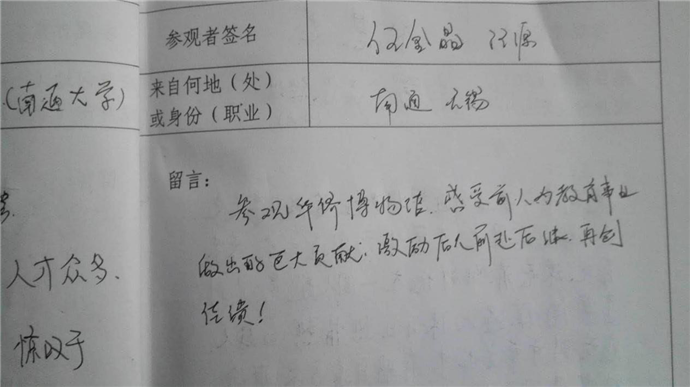 参观者签名
任金晶 汪源
(南通大学)
来自何地(处)
或身份(职业)
南通 无锡
留言:
参观华侨博物馆,感受前人为教育事业
做出的巨大贡献,激励后人前赴后继,再创
佳绩!
人才众多.
惊叹于